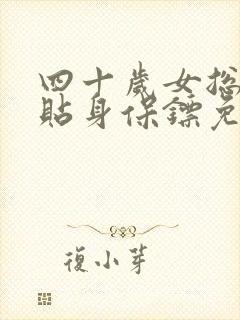 四十歲女總
貼身保鏢免
復小芽